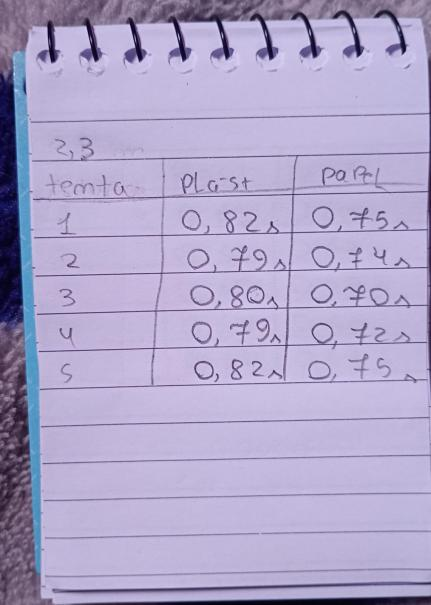 2,3
tenta PLast PaPeL
1 0,82s 0,75s
2 0,79s 0,74s
3 0,80s 0,70s
4 0,79s 0,72s
5 0,82s 0,75s